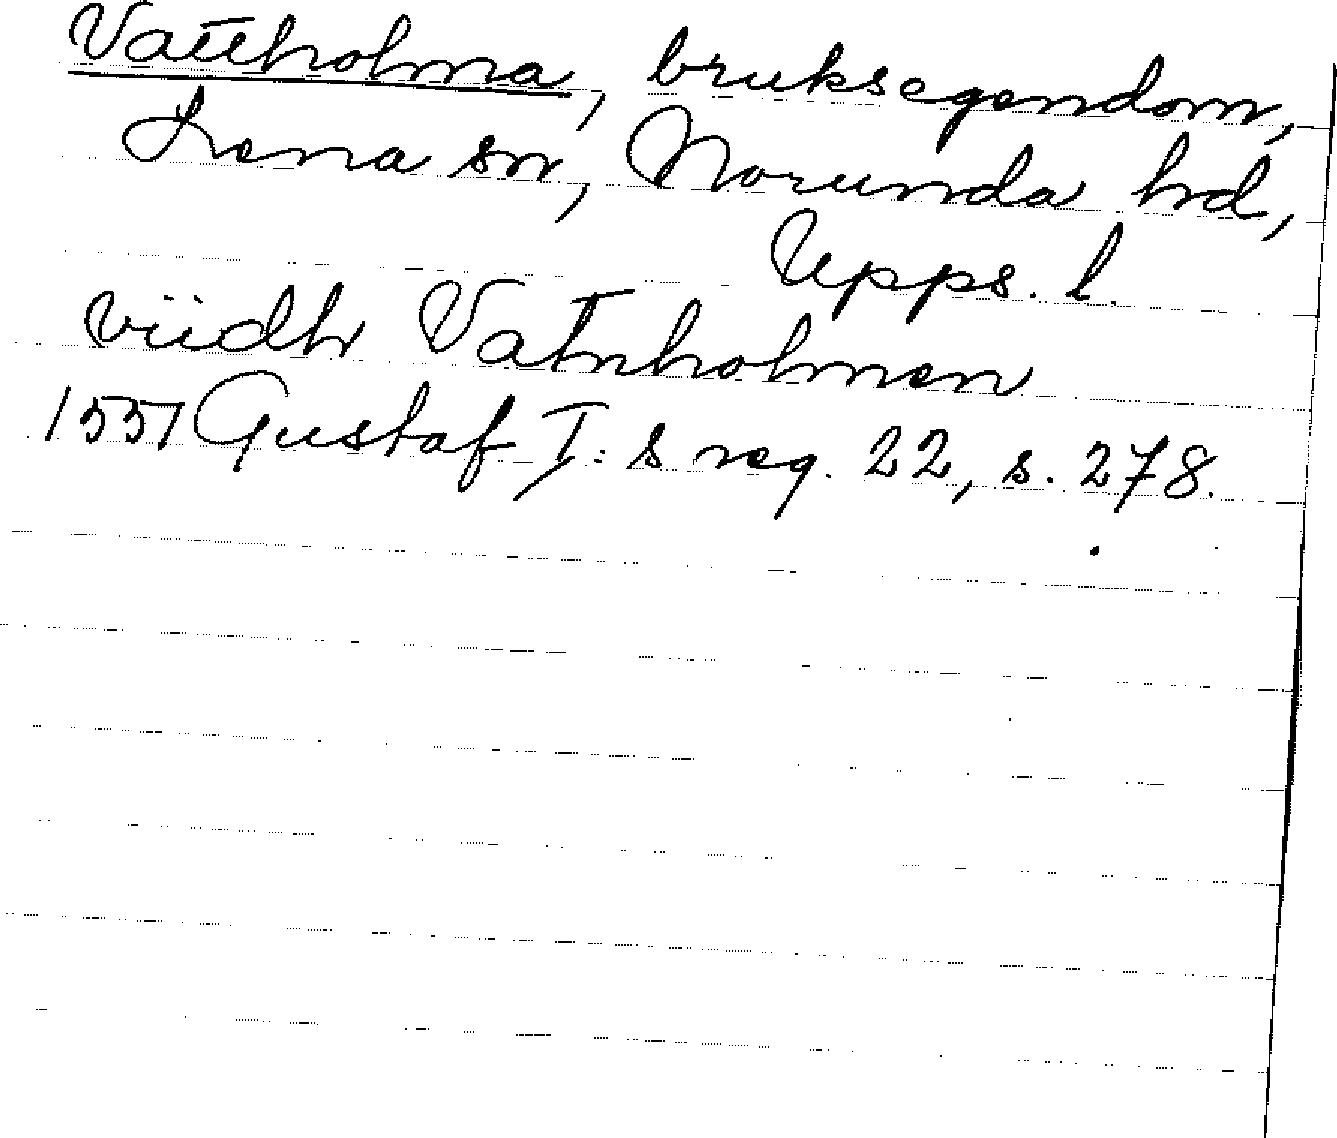 Vattholma, bruksegendom,
Lena sn, Norunda hd,
Upps. l.
viidh Vatnholmen
1551 Gustaf I:s reg. 22, s. 278.